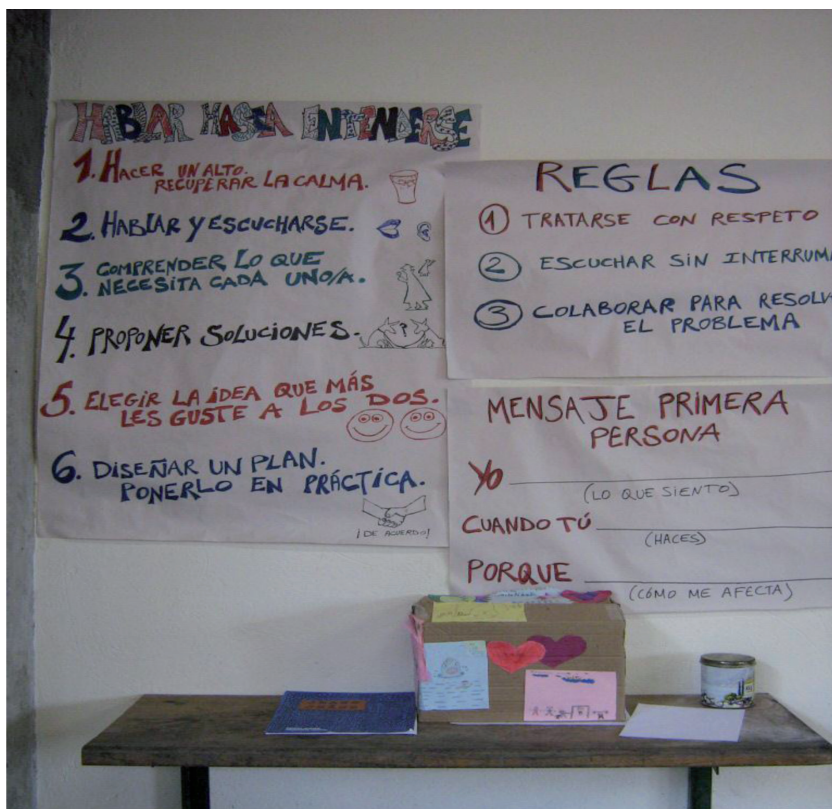 HABLAR HASTA ENTENDERSE
1. HACER UN ALTO.
RECUPERAR LA CALMA.
2. HABLAR Y ESCUCHARSE.
3. COMPRENDER LO QUE
NECESITA CADA UNO/A.
4. PROPONER SOLUCIONES.
?
5. ELEGIR LA IDEA QUE MÁS
LES GUSTE A LOS DOS.
6. DISEÑAR UN PLAN.
PONERLO EN PRÁCTICA.
¡DE ACUERDO!
REGLAS
1 TRATARSE CON RESPETO
2 ESCUCHAR SIN INTERRUM
3 COLABORAR PARA RESOLV
EL PROBLEMA
MENSAJE PRIMERA
PERSONA
YO
(LO QUE SIENTO)
CUANDO TÚ
(HACES)
PORQUE
(CÓMO ME AFECTA)